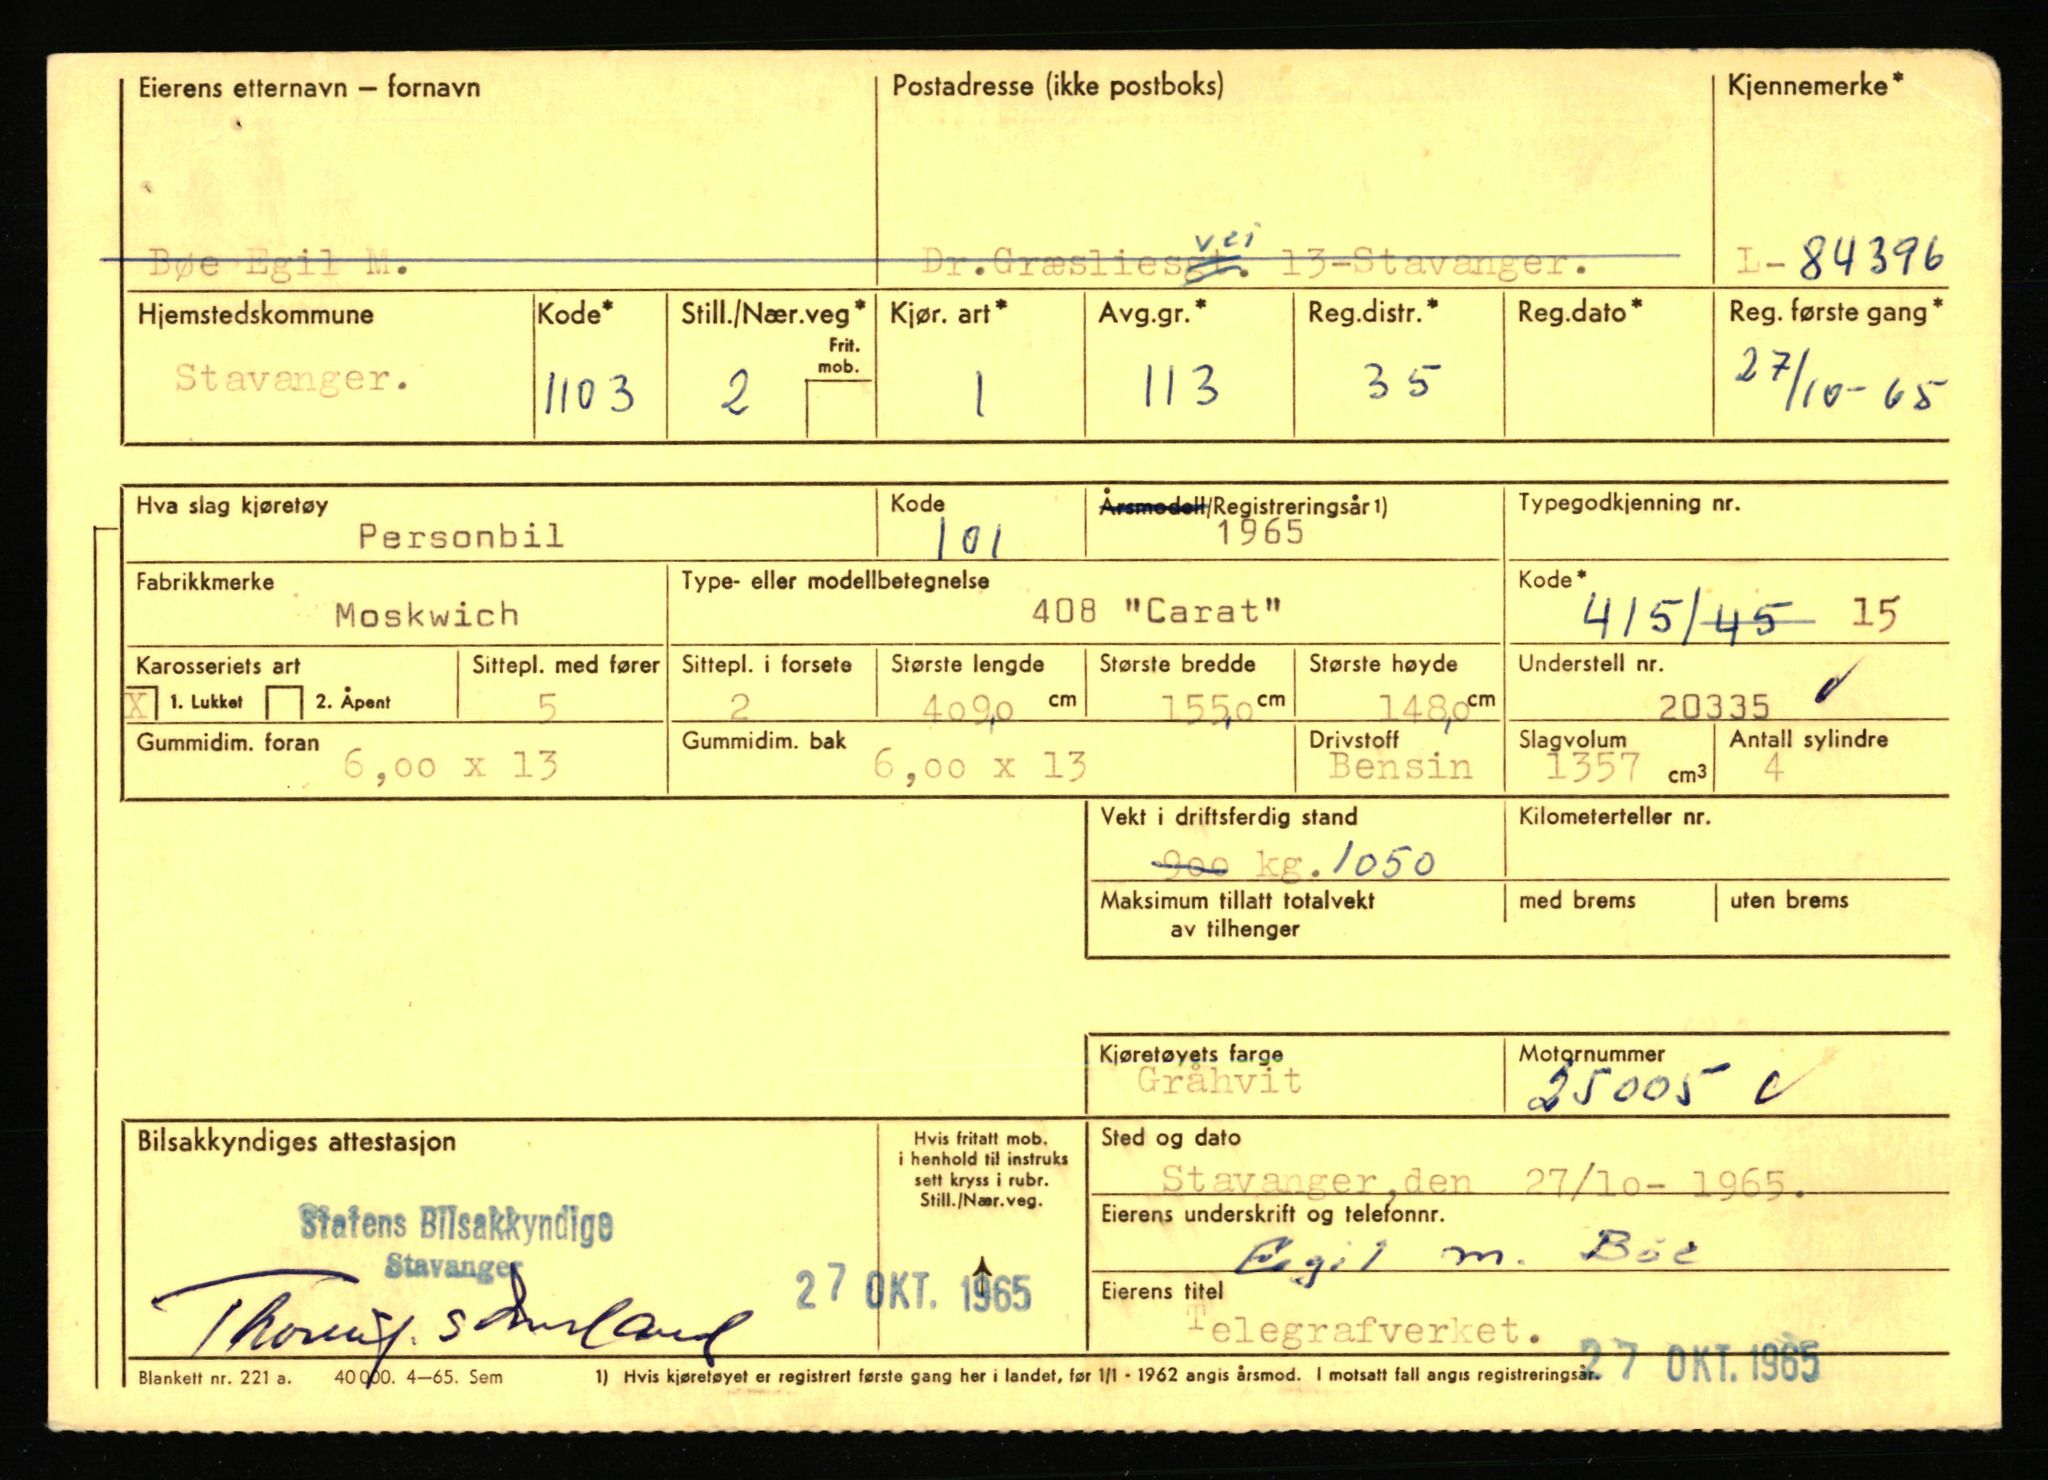 Eierens etternavn – fornavn Postadresse (ikke postboks) Kjennemerke*
vei
Bøe Egil M. Dr.Græsliesgt. 13-Stavanger. L- 84396
Hjemstedskommune Kode* Still./Nær.veg* Kjør. art* Avg.gr.* Reg.distr.* Reg.dato* Reg. første gang*
Frit.
mob.
Stavanger. 1103 2 1 113 35 27/10-65
Hva slag kjøretøy Kode Årsmodell/Registreringsår1) Typegodkjenning nr.
Personbil 101 1965
Fabrikkmerke Type- eller modellbetegnelse Kode*
Moskwich 408 "Carat" 415/45 15
Karosseriets art Sittepl. med fører Sittepl. i forsete Største lengde Største bredde Største høyde Understell nr.
X 1. Lukket 2. Åpent 5 2 409,0 cm 155,0 cm 148,0 cm 20335
Gummidim. foran Gummidim. bak Drivstoff Slagvolum Antall sylindre
6,00 x 13 6,00 x 13 Bensin 1357 cm3 4
Vekt i driftsferdig stand Kilometerteller nr.
900 kg. 1050
Maksimum tillatt totalvekt med brems uten brems
av tilhenger
Kjøretøyets farge Motornummer
Gråhvit 25005
Bilsakkyndiges attestasjon Hvis fritatt mob. Sted og dato
i henhold til instruks
sett kryss i rubr.
Still./Nær.veg.
Stavanger,den 27/10- 1965.
Statens Bilsakkyndige Eierens underskrift og telefonnr.
Stavanger Egil M. Bøe
27 OKT. 1965 Eierens titel
Telegrafverket.
27 OKT. 1965
Blankett nr. 221 a. 40 000. 4–65. Sem 1) Hvis kjøretøyet er registrert første gang her i landet, før 1/1 - 1962 angis årsmod. I motsatt fall angis registreringsår.